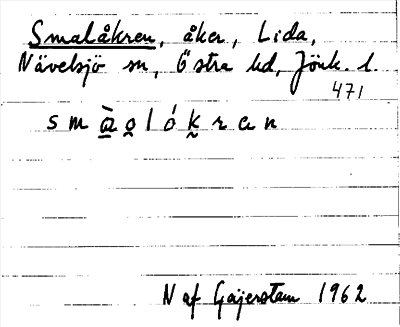 Smalåkren, åker, Lida,
Nävelsjö sn, Östra hd, Jönk. l.
471
s m à̱ o̱ l ó k̰ r a n
N af Geijerstam 1962